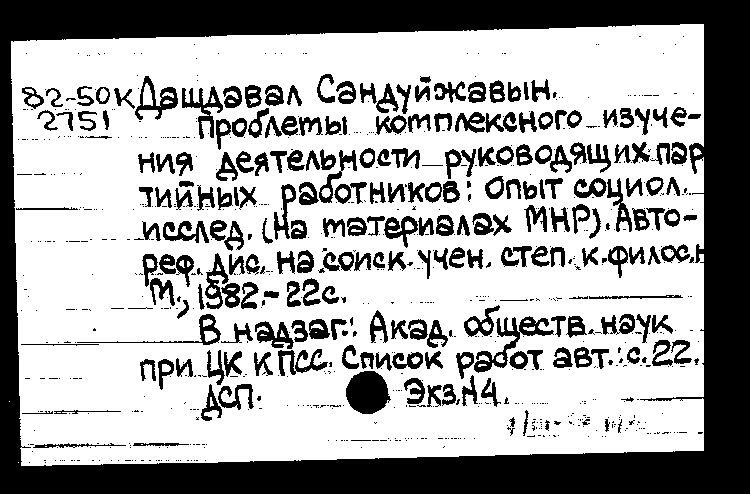 82-50к Дашдавал Сандуйжавын.
2751 Проблемы комплексного изуче-
ния деятельности руководящих пар
тийных работников: Опыт социол.
исслед. (На материалах МНР). Авто-
реф. дис. на соиск. учен. степ. к.филос.н
М., 1982.- 22с.
В надзаг.: Акад. обществ. наук
при ЦК КПСС. Список работ авт.: с.22.
ДСП. Экз.N4.